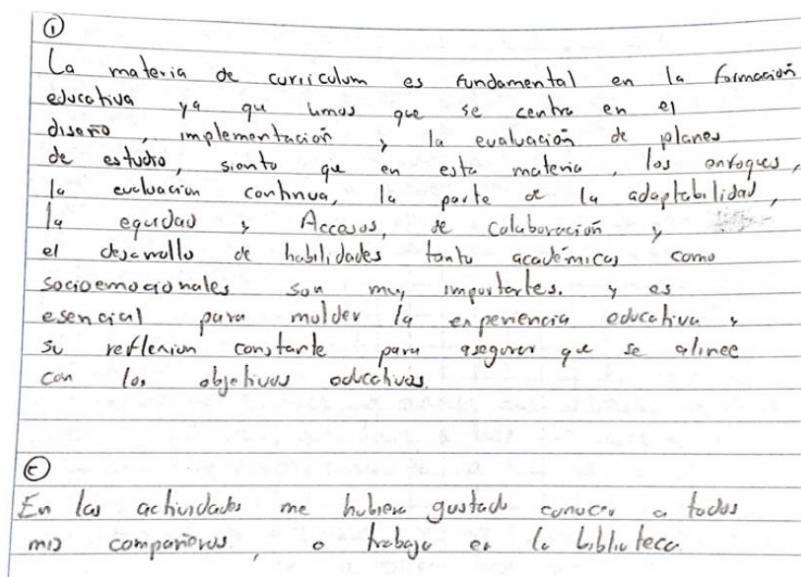 ①
La materia de curriculum es fundamental en la formación
educativa ya que vimos que se centra en el
diseño, implementación y la evaluación de planes
de estudio, siento que en esta materia, los enfoques,
la evaluacion continua, la parte de la adaptabilidad,
la equidad y Accesos, de colaboración y
el desarrollo de habilidades tanto académicas como
socioemocionales son muy importantes. y es
esencial para molder la experiencia educativa y
su reflexion constante para asegurar que se alinee
con los objetivos educativos.
②
En las actividades me hubiera gustado conocer a todos
mis compañeros, o trabajo en la biblioteca.